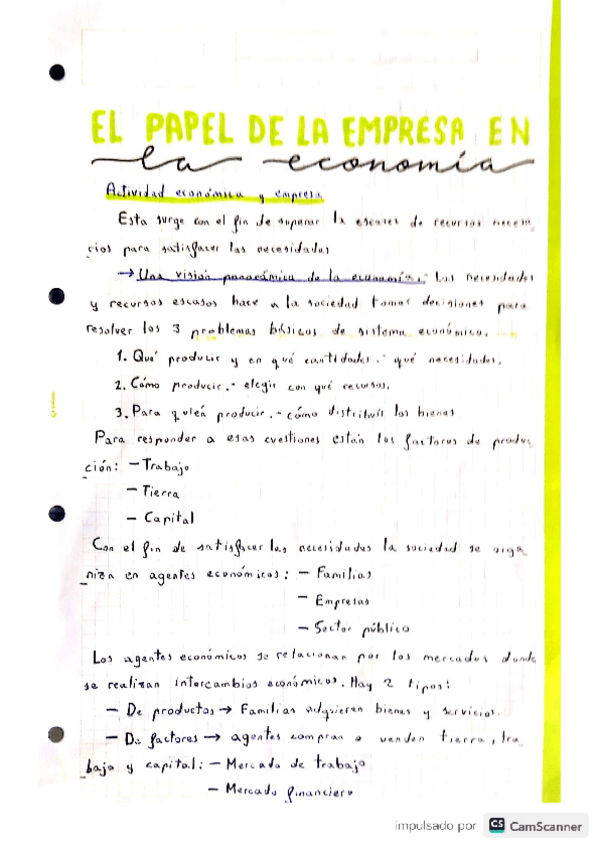 EL PAPEL DE LA EMPRESA EN
la economía
Actividad económica y empresa
Esta surge con el fin de superar la escases de recursos necesa
rios para satisfacer las necesidades
→ Una visión panorámica de la economía.- Las necesidades
y recursos escasos hace a la sociedad tomar decisiones para
resolver los 3 problemas básicos de sistema económico.
1. Qué producir y en qué cantidades.- qué necesidades.
2. Cómo producir.- elegir con qué recursos.
3. Para quién producir.- cómo distribuir los bienes
Para responder a esas cuestiones están los factores de produc
ción: - Trabajo
- Tierra
- Capital
Con el fin de satisfacer las necesidades la sociedad se orga
niza en agentes económicos: - Familias
- Empresas
- Sector público
Los agentes económicos se relacionan por los mercados donde
se realizan intercambios económicos. Hay 2 tipos:
- De productos → Familias adquieren bienes y servicios.
- De factores → agentes compran o venden tierra, tra
bajo y capital: - Mercado de trabajo
- Mercado financiero
impulsado por CS CamScanner